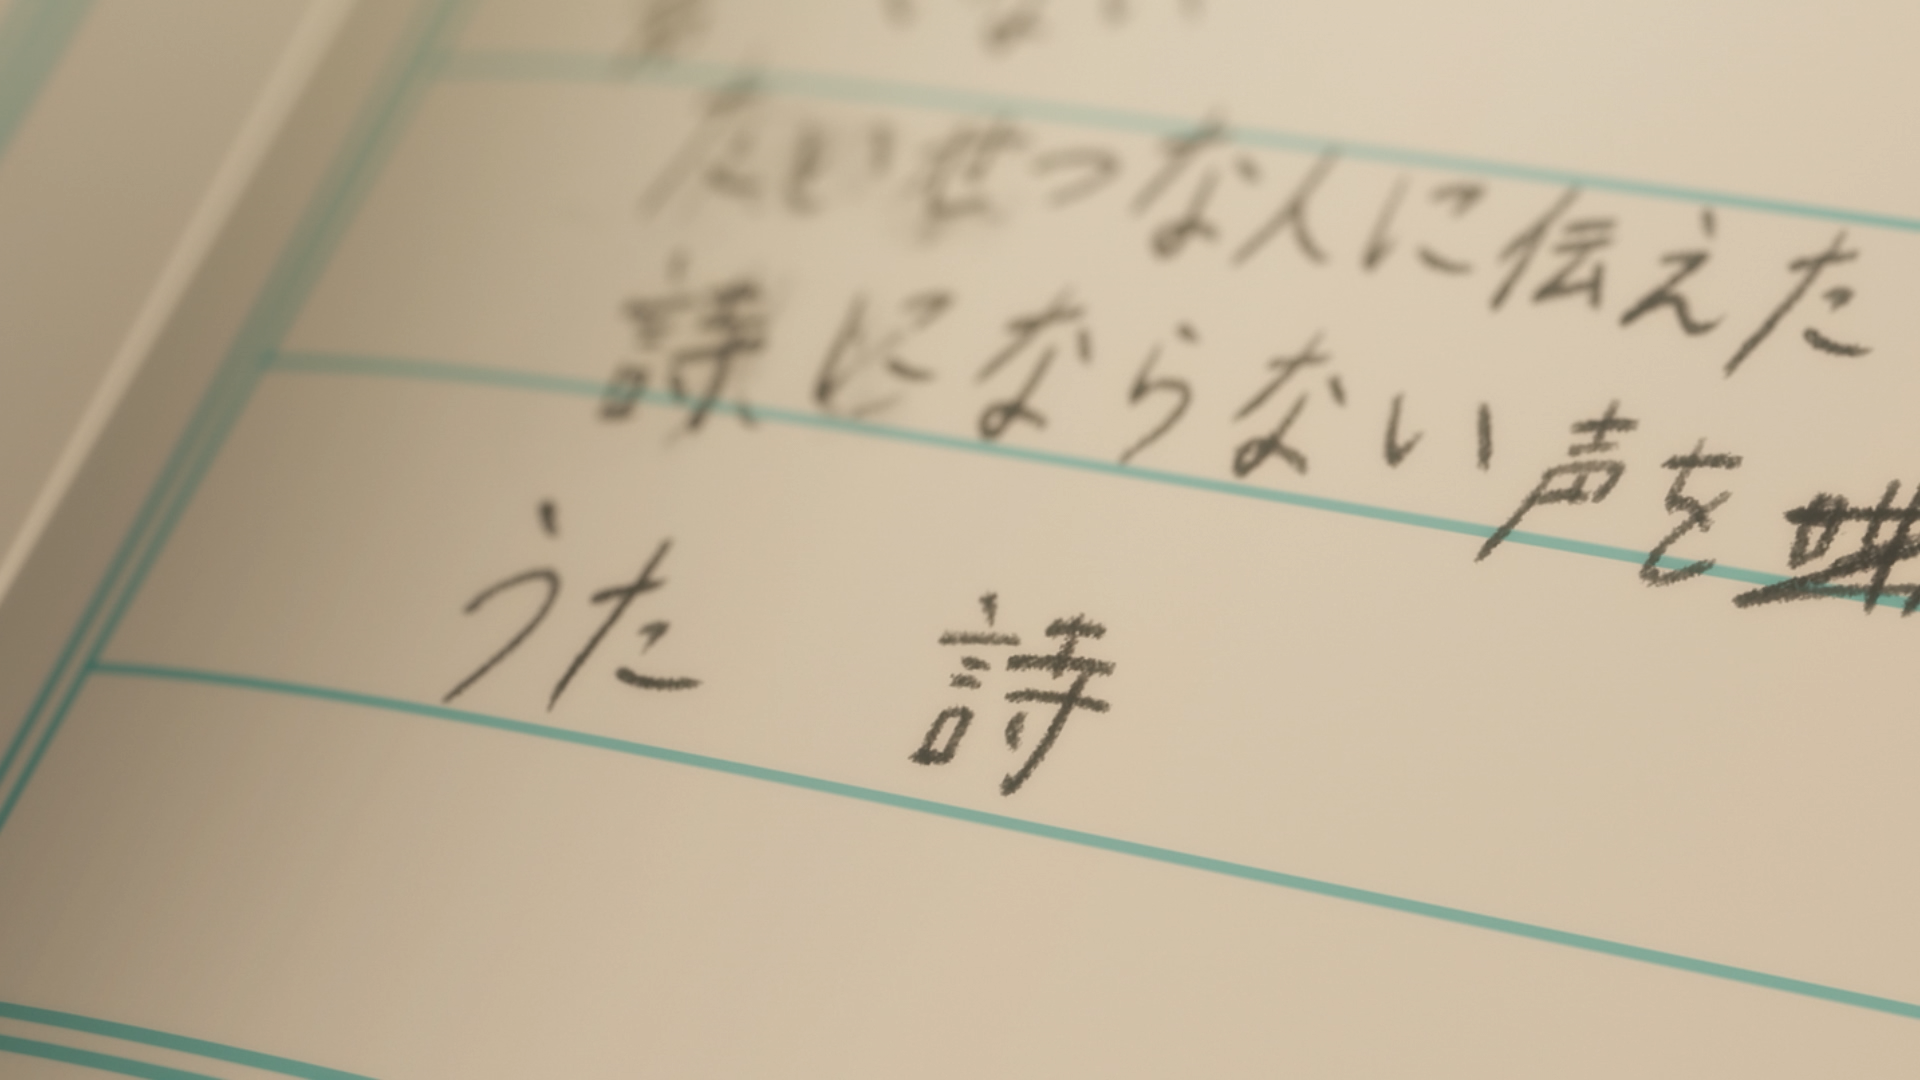 たいせつな人に伝えた
詩にならない声を
うた 詩